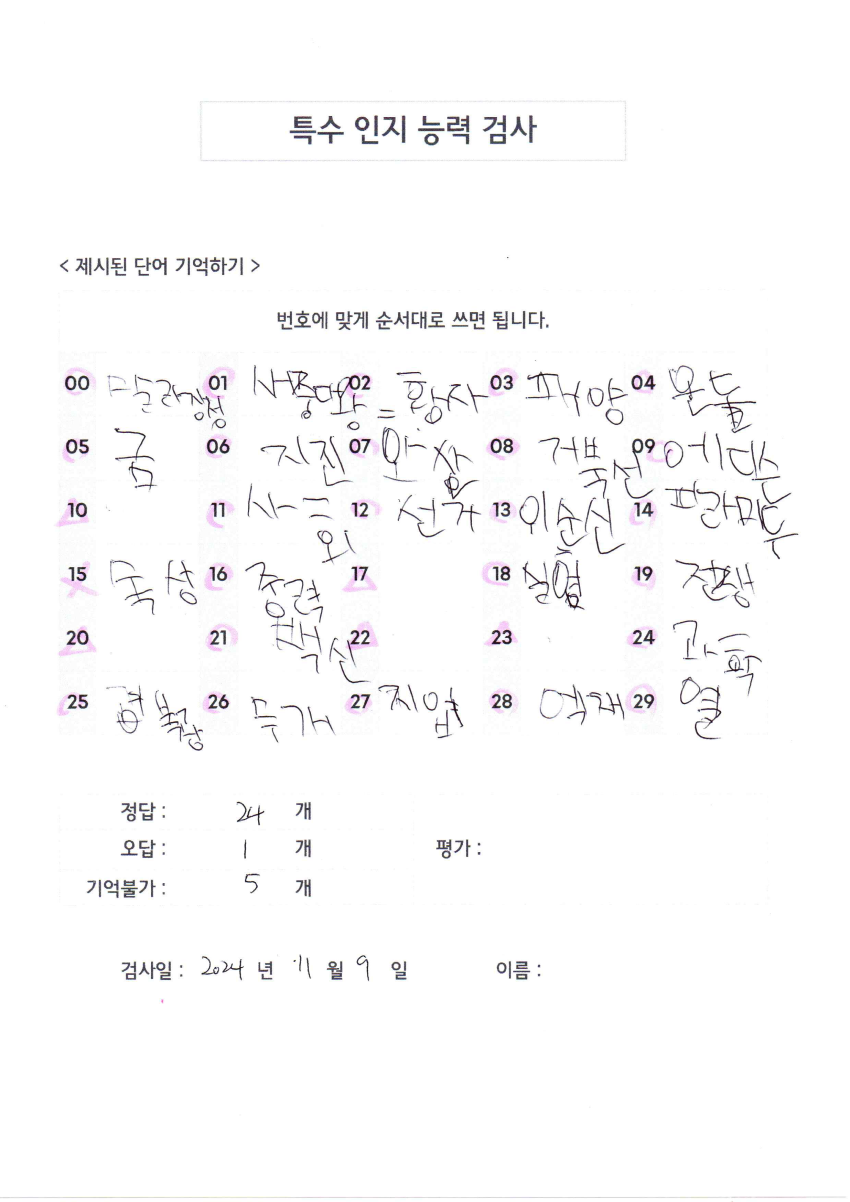 특수 인지 능력 검사
< 제시된 단어 기억하기 >
번호에 맞게 순서대로 쓰면 됩니다.
00 만리장성 01 세종대왕 02 황자 03 태양 04 온돌
05 곰 06 지진 07 화살 08 거북선 09 에디슨
10 11 사회 12 선거 13 이순신 14 피라미드
15 독성 16 중력 17 18 실험 19 전쟁
20 21 백신 22 23 24 과학
25 26 무게 27 직업 28 액체 29 열
정답 : 24 개
오답 : 1 개 평가 :
기억불가 : 5 개
검사일 : 2024 년 11 월 9 일 이름 :